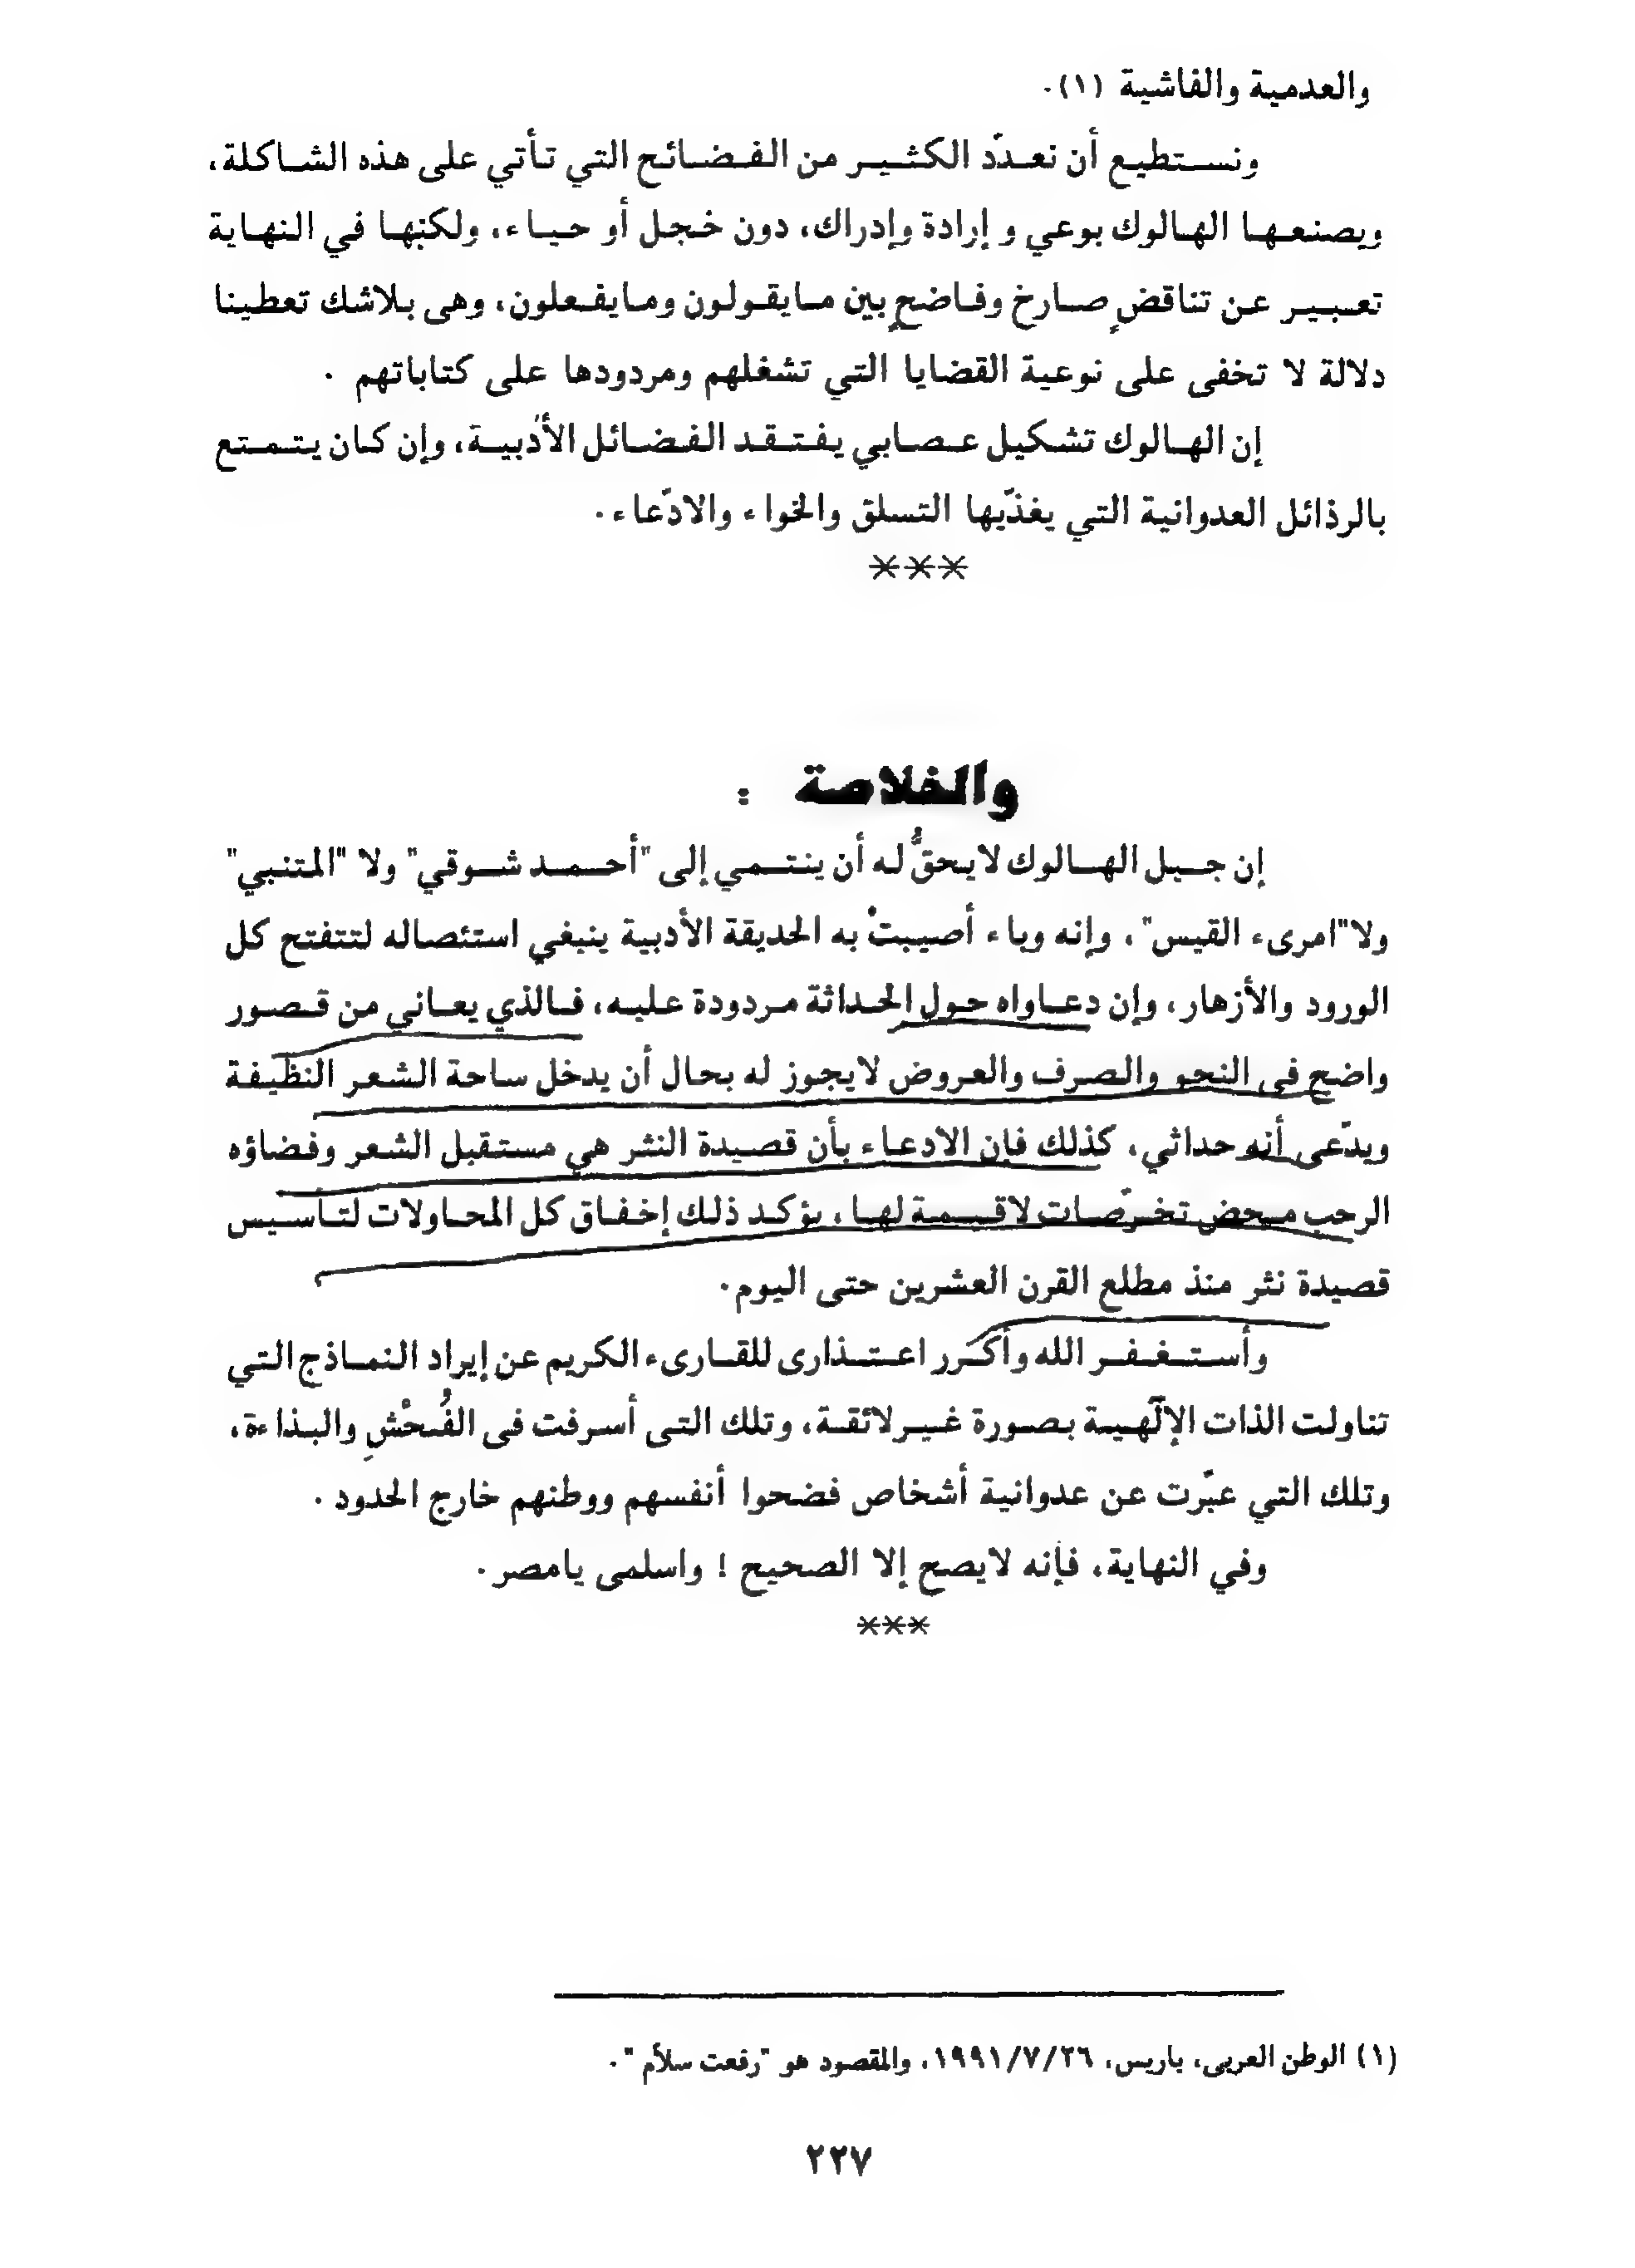 والعدمية والفاشية (١).
ونستطيع أن نعدّد الكثير من الفضائح التي تأتي على هذه الشاكلة،
ويصنعها الهالوك بوعي و إرادة وإدراك، دون خجل أو حياء، ولكنها في النهاية
تعبير عن تناقضٍ صارخ وفاضحٍ بين مايقولون ومايفعلون، وهى بلاشك تعطينا
دلالة لا تخفى على نوعية القضايا التي تشغلهم ومردودها على كتاباتهم .
إن الهالوك تشكيل عصابي يفتقد الفضائل الأدبية، وإن كان يتمتع
بالرذائل العدوانية التي يغذّيها التسلق والخواء والادّعاء.
***
والخلاصة :
إن جيل الهالوك لايحقُّ له أن ينتمي إلى "أحمد شوقي" ولا "المتنبي"
ولا"امرىء القيس"، وإنه وباء أصيبتْ به الحديقة الأدبية ينبغي استئصاله لتتفتح كل
الورود والأزهار، وإن دعاواه حول الحداثة مردودة عليه، فالذي يعاني من قصور
واضح فى النحو والصرف والعروض لايجوز له بحال أن يدخل ساحة الشعر النظيفة
ويدّعى أنه حداثي، كذلك فإن الادعاء بأن قصيدة النثر هي مستقبل الشعر وفضاؤه
الرحب محض تخرّصات لاقيمة لها، يؤكد ذلك إخفاق كل المحاولات لتأسيس
قصيدة نثر منذ مطلع القرن العشرين حتى اليوم.
وأستغفر الله وأكرر اعتذارى للقارىء الكريم عن إيراد النماذج التي
تناولت الذات الإلٓهية بصورة غيرلائقة، وتلك التى أسرفت فى الفُحْشِ والبذاءة،
وتلك التي عبّرت عن عدوانية أشخاص فضحوا أنفسهم ووطنهم خارج الحدود .
وفي النهاية، فإنه لايصح إلا الصحيح ! واسلمى يامصر.
***
(١) الوطن العربى، باريس، ١٩٩١/٧/٢٦، والمقصود هو "رفعت سلاّم ".
٢٢٧